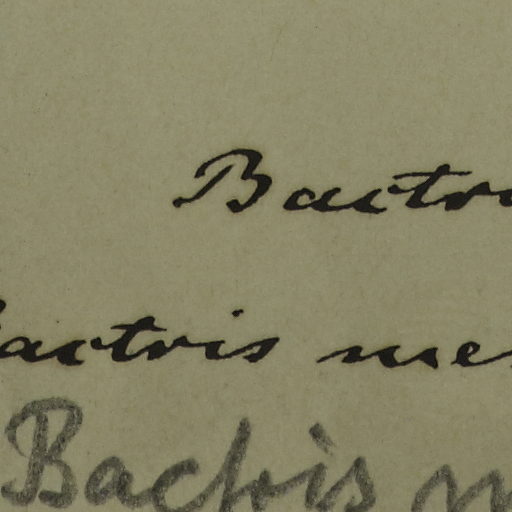 Bactr
Bactris me
Bactris m